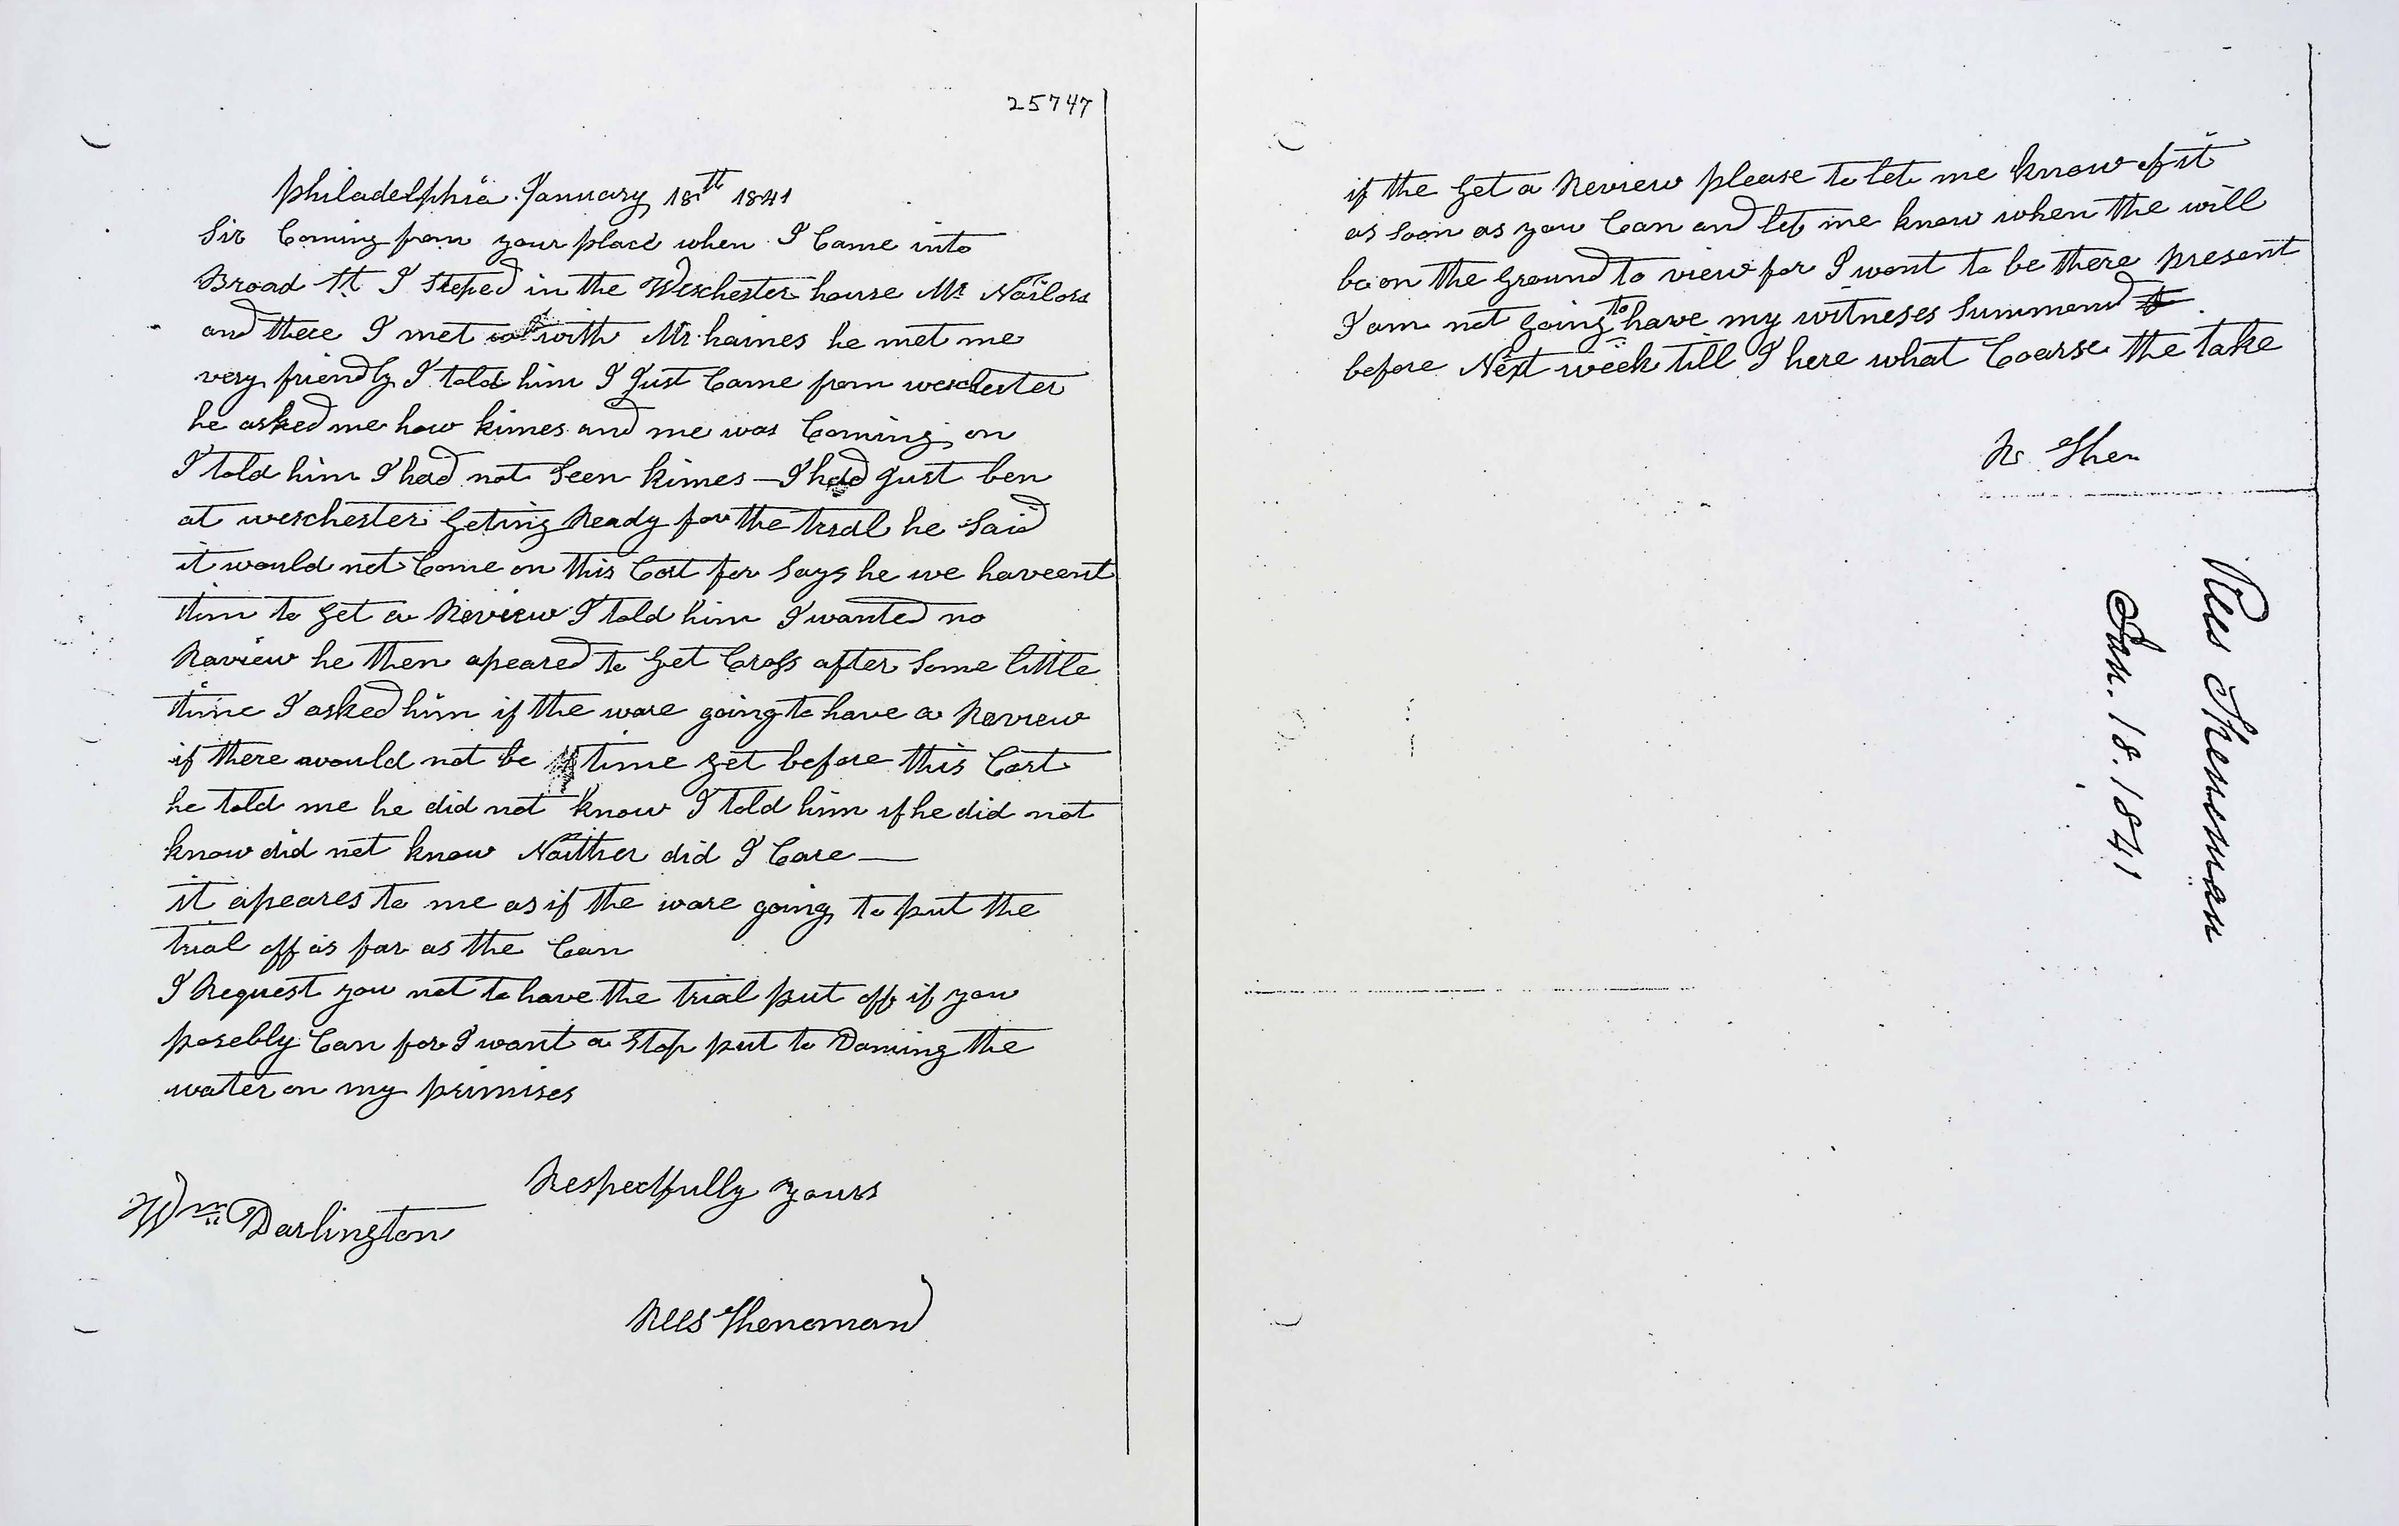 25747
Philadelphia January 18th 1841
Sir Coming from your place when I Came into
Broad St I Steped in the Weschester house Mr Nailors
and there I met with Mr haines he met me
very friendly I told him I Just Came from weschester
he asked me how kimes and me was Coming on
I told him I had not Seen kimes — I had Just ben
at weschester Geting Ready for the trial he Said
it would not Come on this Cort for Says he we haveent
tim to get a Review I told him I wanted no
Review he then apeared to Get Cross after Some little
time I asked him if the ware going to have a Review
if there would not be time yet before this Cort
he told me he did not know I told him if he did not
know did not know Naither did I Care —
it apeares to me as if the ware going to put the
trial off as far as the Can
I Request you not to have the trial put off if you
posebly Can for I want a Stop put to Daming the
water on my primises
Respectfully yours
Wm Darlington
Rees Thenoman
if the Get a Review please to let me know of it
as Soon as you Can and let me know when the will
be on the Ground to view for I want to be there present
I am not Going to have my witneses Summond
before Next week till I here what Coarse the take
Rs Then
Rees Thenoman
Jan. 18. 1841